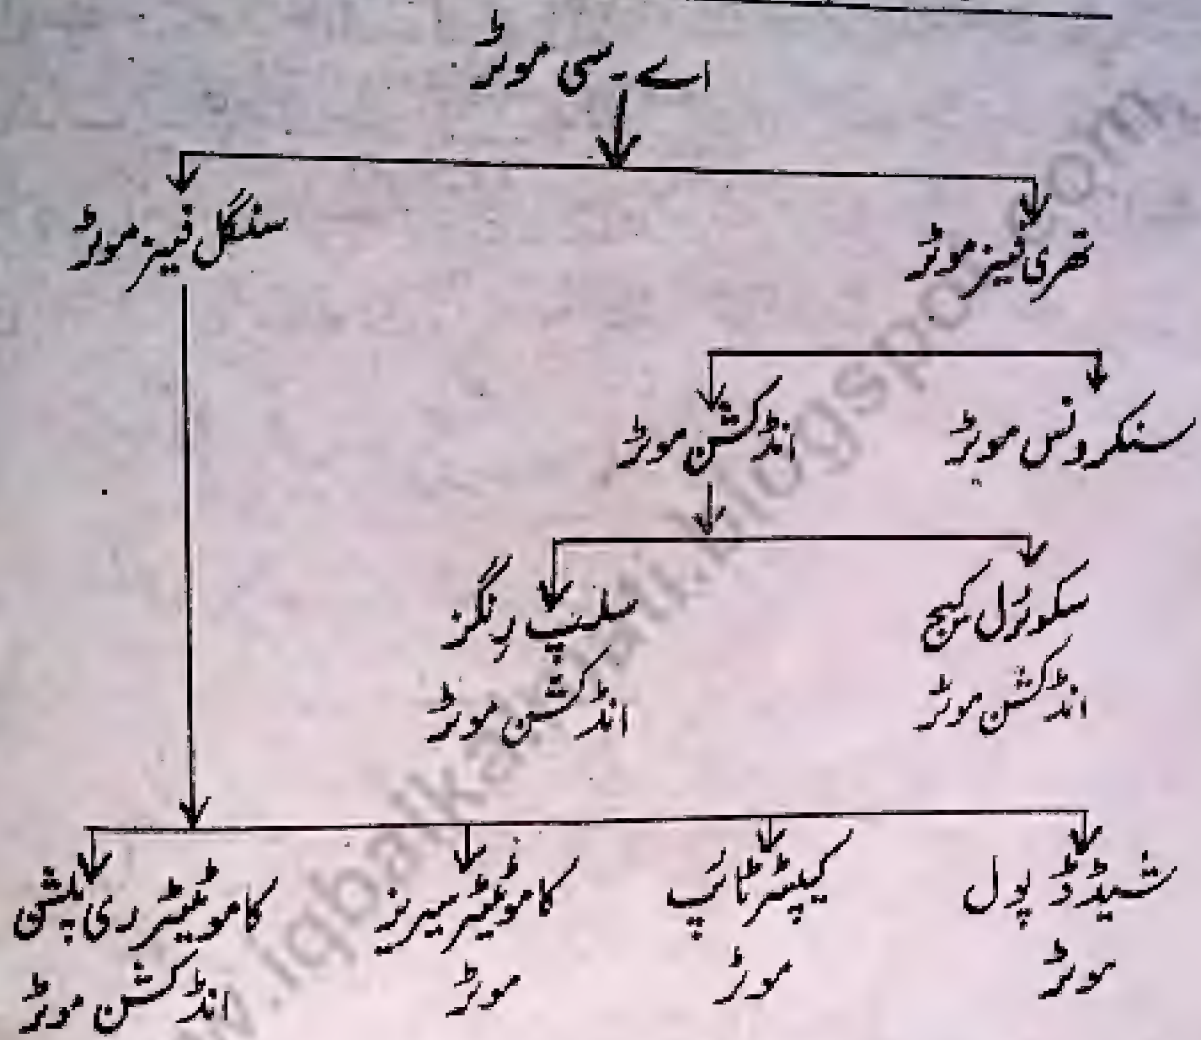 اے۔سی موٹر
تھری فیز موٹر
سنگل فیز موٹر
سنکرونس موٹر
انڈکشن موٹر
سکوئرل کیج
انڈکشن موٹر
سلپ رِنگز
انڈکشن موٹر
شیڈڈ پول
موٹر
کپیسٹر ٹائپ
موٹر
کاموٹیٹر سیریز
موٹر
کاموٹیٹر ری پلشی
انڈکشن موٹر